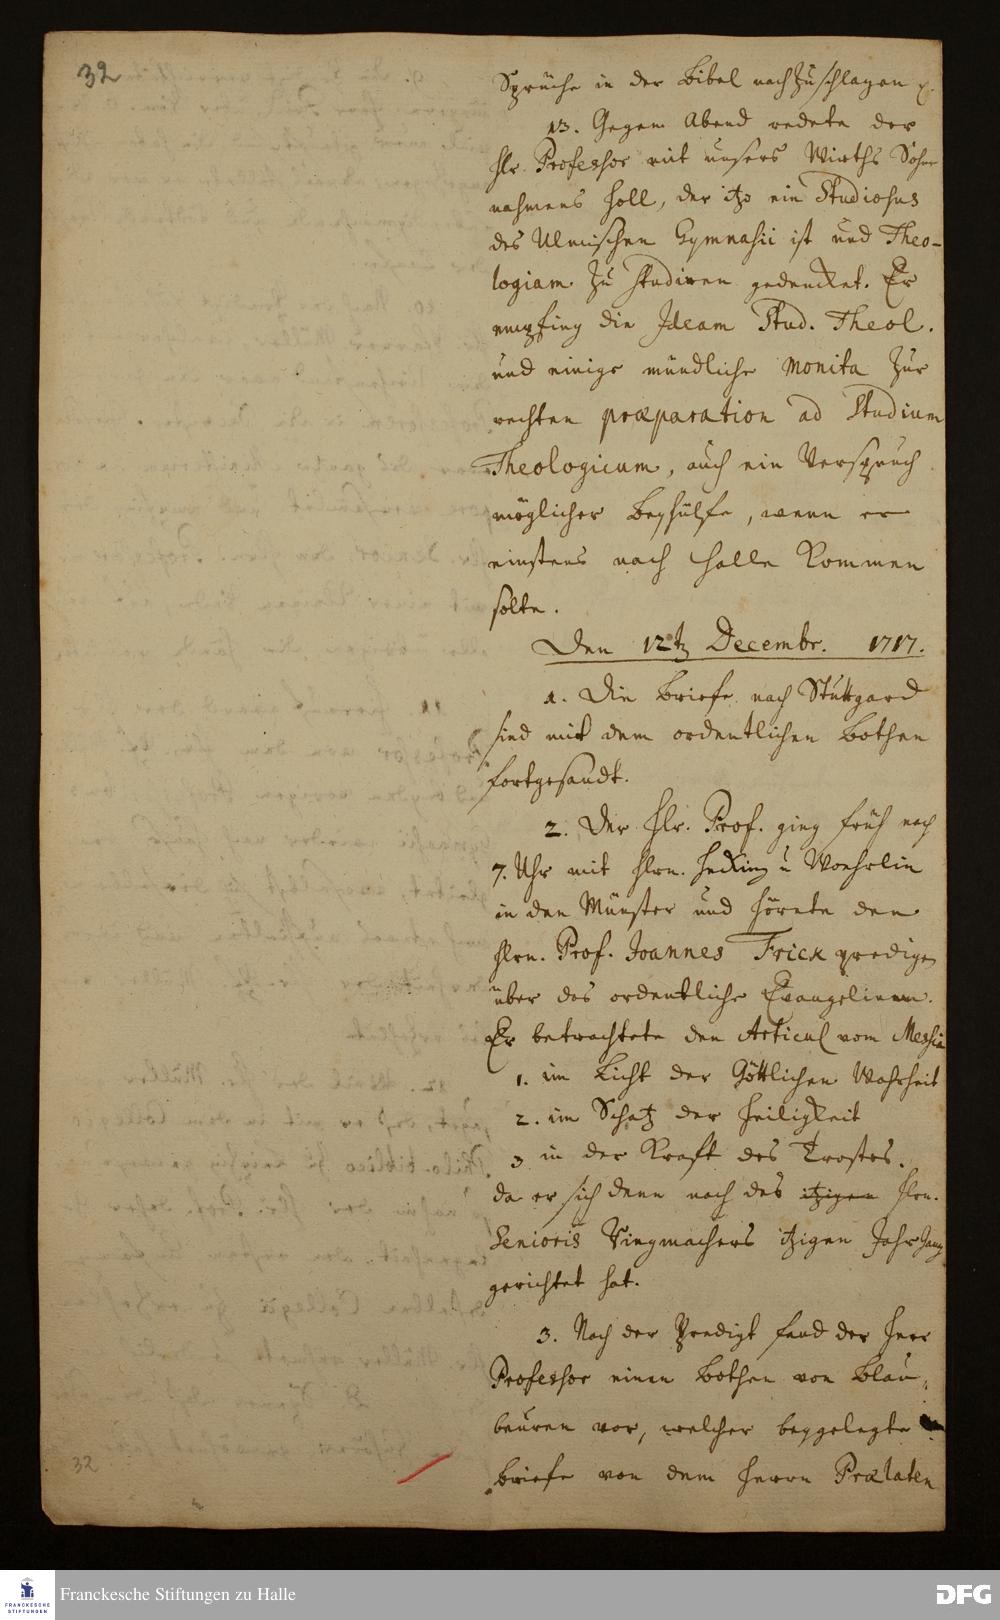 32
Sprüche in der Bibel nachzuschlagen
13. Gegen Abend redete der
Hr. Professor mit unsers Wirths Sohne
nahmens Holl, der itzo ein Studiosus
des Ulmischen Gymnasii ist und Theo-
logiam zu studiren gedencket. Er
empfing die Ideam Stud. Theol.
und einige mündliche Monita zur
rechten præparation ad Studium
Theologicum, auch ein Verspruch
möglicher Beyhülfe, wenn er
einstens nach Halle kommen
solte.
Den 12t Decembr. 1717.
1. Die Briefe nach Stuttgard
sind mit dem ordentlichen Bothen
fortgesandt.
2. Der Hr. Prof. ging früh nach
7. Uhr mit Hrn. u Woehrlin
in den Münster und hörete den
Hrn. Prof. Joannes Frick predigen
über das ordentliche Evangelium.
Er betrachtete den Articul vom Messia
1. im Licht der Göttlichen Wahrheit
2. im Schatz der Heiligkeit
3 in der Krafft des Trostes.
da er sich denn nach des itzigen Hrn.
Senioris itzigen Jahrgang
gerichtet hat.
3. Nach der Predigt fand der Herr
Professor einen Bothen von Blau-
beuren vor, welcher beygelegte
Briefe von dem Herrn Prælaten
32
Franckesche Stiftungen zu Halle
FRANCKESCHE
STIFTUNGEN
DFG